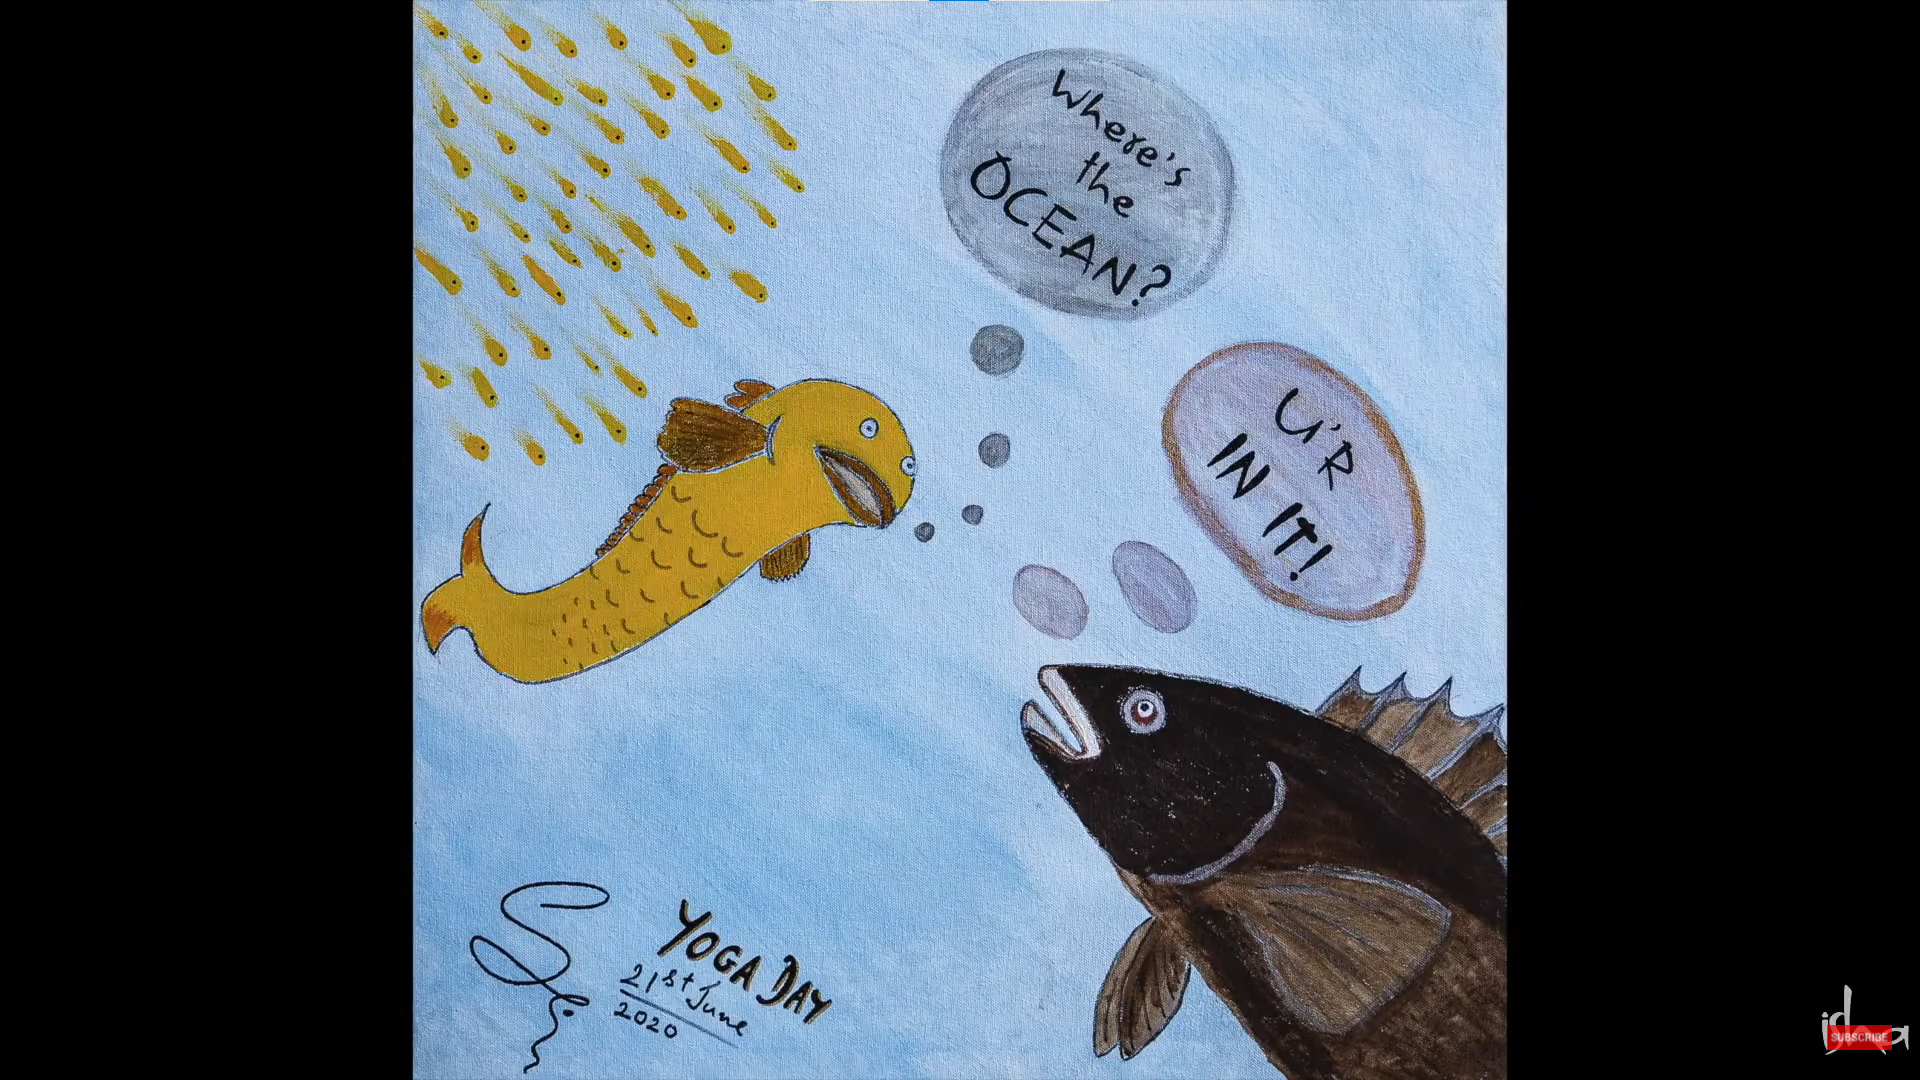 Where's
the
OCEAN?
U'R
IN IT!
YOGA DAY
21st June
2020
SUBSCRIBE